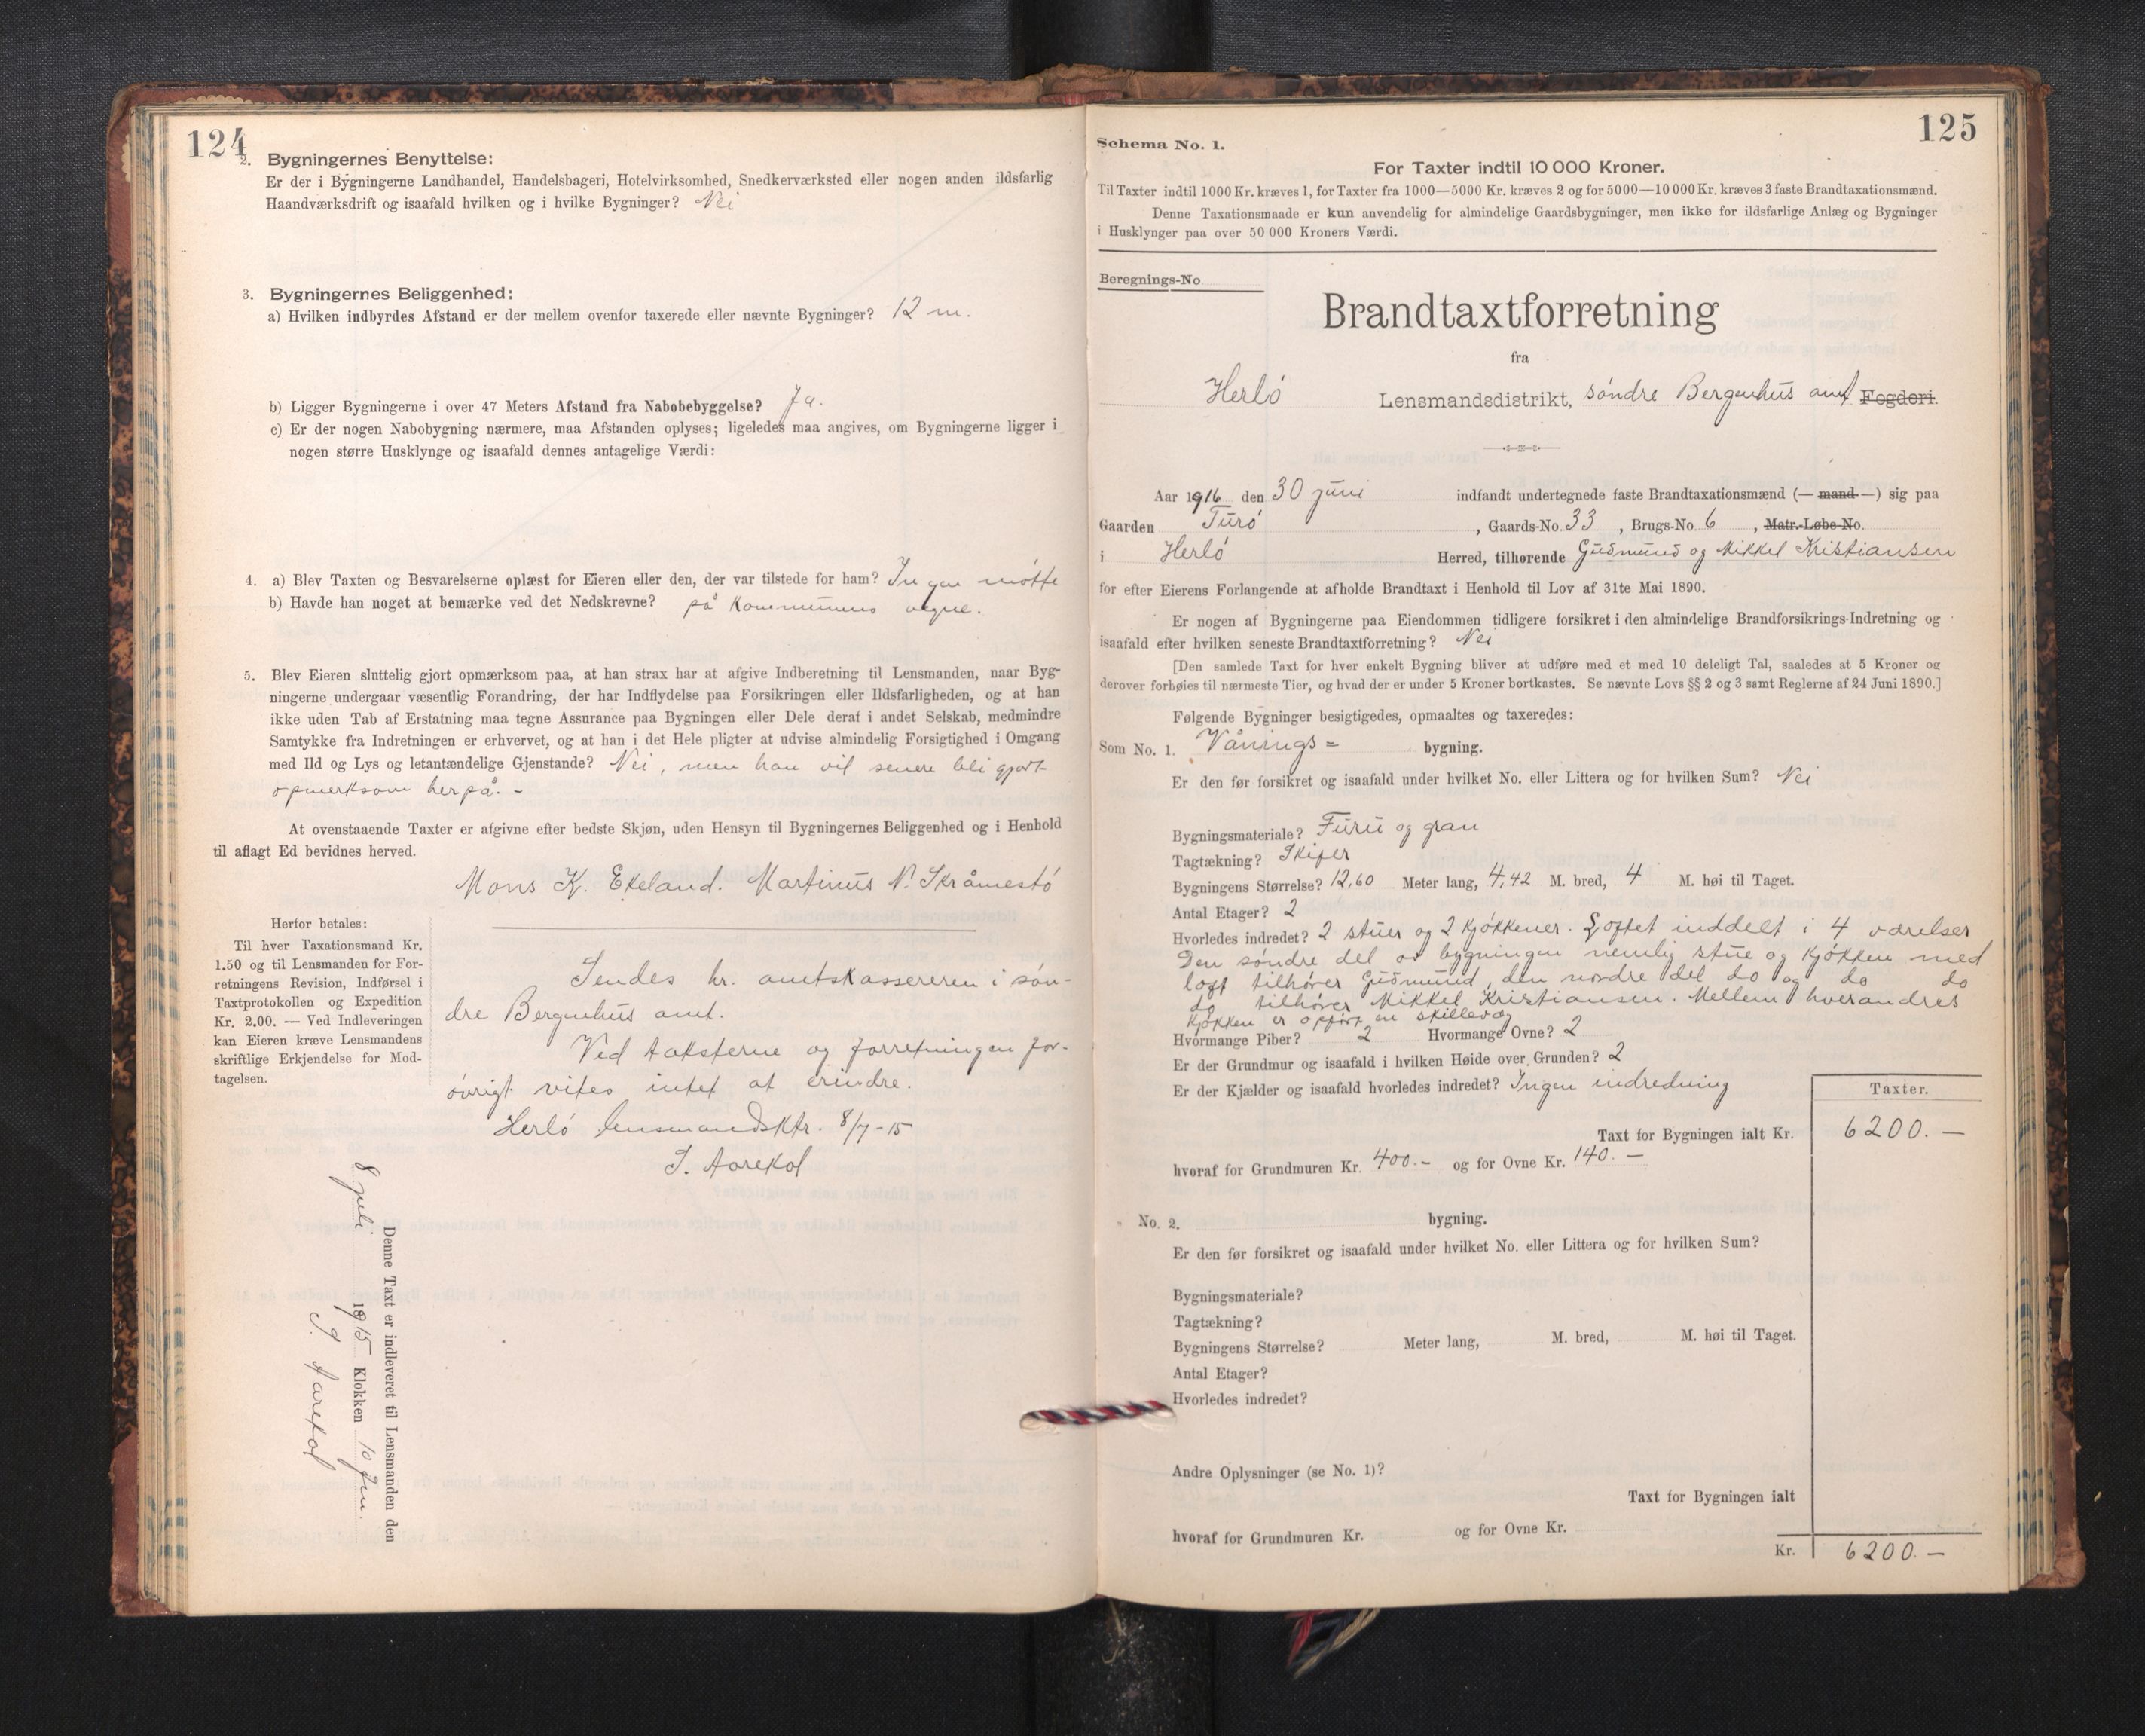 124
2. Bygningernes Benyttelse:
Er der i Bygningerne Landhandel, Handelsbageri, Hotelvirksomhed, Snedkerværksted eller nogen anden ildsfarlig
Haandværksdrift og isaafald hvilken og i hvilke Bygninger? Nei
3. Bygningernes Beliggenhed:
a) Hvilken indbyrdes Afstand er der mellem ovenfor taxerede eller nævnte Bygninger? 12 m.
b) Ligger Bygningerne i over 47 Meters Afstand fra Nabobebyggelse? Ja.
c) Er der nogen Nabobygning nærmere, maa Afstanden oplyses; ligeledes maa angives, om Bygningerne ligger i
nogen større Husklynge og isaafald dennes antagelige Værdi:
4. a) Blev Taxten og Besvarelserne oplæst for Eieren eller den, der var tilstede for ham? Ingen møtte
b) Havde han noget at bemærke ved det Nedskrevne? på kommunens vegne.
5. Blev Eieren sluttelig gjort opmærksom paa, at han strax har at afgive Indberetning til Lensmanden, naar Byg-
ningerne undergaar væsentlig Forandring, der har Indflydelse paa Forsikringen eller Ildsfarligheden, og at han
ikke uden Tab af Erstatning maa tegne Assurance paa Bygningen eller Dele deraf i andet Selskab, medmindre
Samtykke fra Indretningen er erhvervet, og at han i det Hele pligter at udvise almindelig Forsigtighed i Omgang
med Ild og Lys og letantændelige Gjenstande? Nei, men han vil senere bli gjort
opmerksom herpå. -
At ovenstaaende Taxter er afgivne efter bedste Skjøn, uden Hensyn til Bygningernes Beliggenhed og i Henhold
til aflagt Ed bevidnes herved.
Mons K. Ekeland. Martinus N. Skråmestø
Herfor betales:
Til hver Taxationsmand Kr.
1.50 og til Lensmanden for For-
retningens Revision, Indførsel i
Taxtprotokollen og Expedition
Kr. 2.00. — Ved Indleveringen
kan Eieren kræve Lensmandens
skriftlige Erkjendelse for Mod-
tagelsen.
Sendes hr. amtskassereren i søn-
dre Bergenhus amt.
Ved taksterne og forretningen for-
øvrigt vites intet at erindre.
Herlø lensmandsktr. 8/7-15
S. Aarekol
Denne Taxt er indleveret til Lensmanden den
8 juli 1915 Klokken 10 fm.
S. Aarekol
125
Schema No. 1.
For Taxter indtil 10 000 Kroner.
Til Taxter indtil 1000 Kr. kræves 1, for Taxter fra 1000—5000 Kr. kræves 2 og for 5000—10 000 Kr. kræves 3 faste Brandtaxationsmænd.
Denne Taxationsmaade er kun anvendelig for almindelige Gaardsbygninger, men ikke for ildsfarlige Anlæg og Bygninger
i Husklynger paa over 50 000 Kroners Værdi.
Beregnings-No
Brandtaxtforretning
fra
Herlø Lensmandsdistrikt, søndre Bergenhus amt Fogderi.
Aar 1916 den 30 juni indfandt undertegnede faste Brandtaxationsmænd (— mand —) sig paa
Gaarden Turø, Gaards-No. 33, Brugs-No. 6, Matr.-Løbe-No.
i Herlø Herred, tilhørende Gudmund og Mikkel Kristiansen
for efter Eierens Forlangende at afholde Brandtaxt i Henhold til Lov af 31te Mai 1890.
Er nogen af Bygningerne paa Eiendommen tidligere forsikret i den almindelige Brandforsikrings-Indretning og
isaafald efter hvilken seneste Brandtaxtforretning? Nei
[Den samlede Taxt for hver enkelt Bygning bliver at udføre med et med 10 deleligt Tal, saaledes at 5 Kroner og
derover forhøies til nærmeste Tier, og hvad der er under 5 Kroner bortkastes. Se nævnte Lovs §§ 2 og 3 samt Reglerne af 24 Juni 1890.]
Følgende Bygninger besigtigedes, opmaaltes og taxeredes:
Som No. 1. Vånings= bygning.
Er den før forsikret og isaafald under hvilket No. eller Littera og for hvilken Sum? Nei
Bygningsmateriale? Furu og gran
Tagtækning? Skifer
Bygningens Størrelse? 12,60 Meter lang, 4,42 M. bred, 4 M. høi til Taget.
Antal Etager? 2
Hvorledes indredet? 2 stuer og 2 kjøkkener. Loftet inddelt i 4 værelser
Den søndre del av bygningen nemlig stue og kjøkken med
loft tilhører Gudmund, den nordre del do og do do
do tilhører Mikkel Kristiansen. Mellem hverandres
kjøkken er opført en skillevæg
Hvormange Piber? 2 Hvormange Ovne? 2
Er der Grundmur og isaafald i hvilken Høide over Grunden? 2
Er der Kjælder og isaafald hvorledes indredet? Ingen indredning
Taxter.
Taxt for Bygningen ialt Kr. 6200. —
hvoraf for Grundmuren Kr. 400.- og for Ovne Kr. 140. —
No. 2. bygning.
Er den før forsikret og isaafald under hvilket No. eller Littera og for hvilken Sum?
Bygningsmateriale?
Tagtækning?
Bygningens Størrelse? Meter lang, M. bred, M. høi til Taget.
Antal Etager?
Hvorledes indredet?
Andre Oplysninger (se No. 1)?
Taxt for Bygningen ialt
hvoraf for Grundmuren Kr. og for Ovne Kr.
Kr. 6200.—